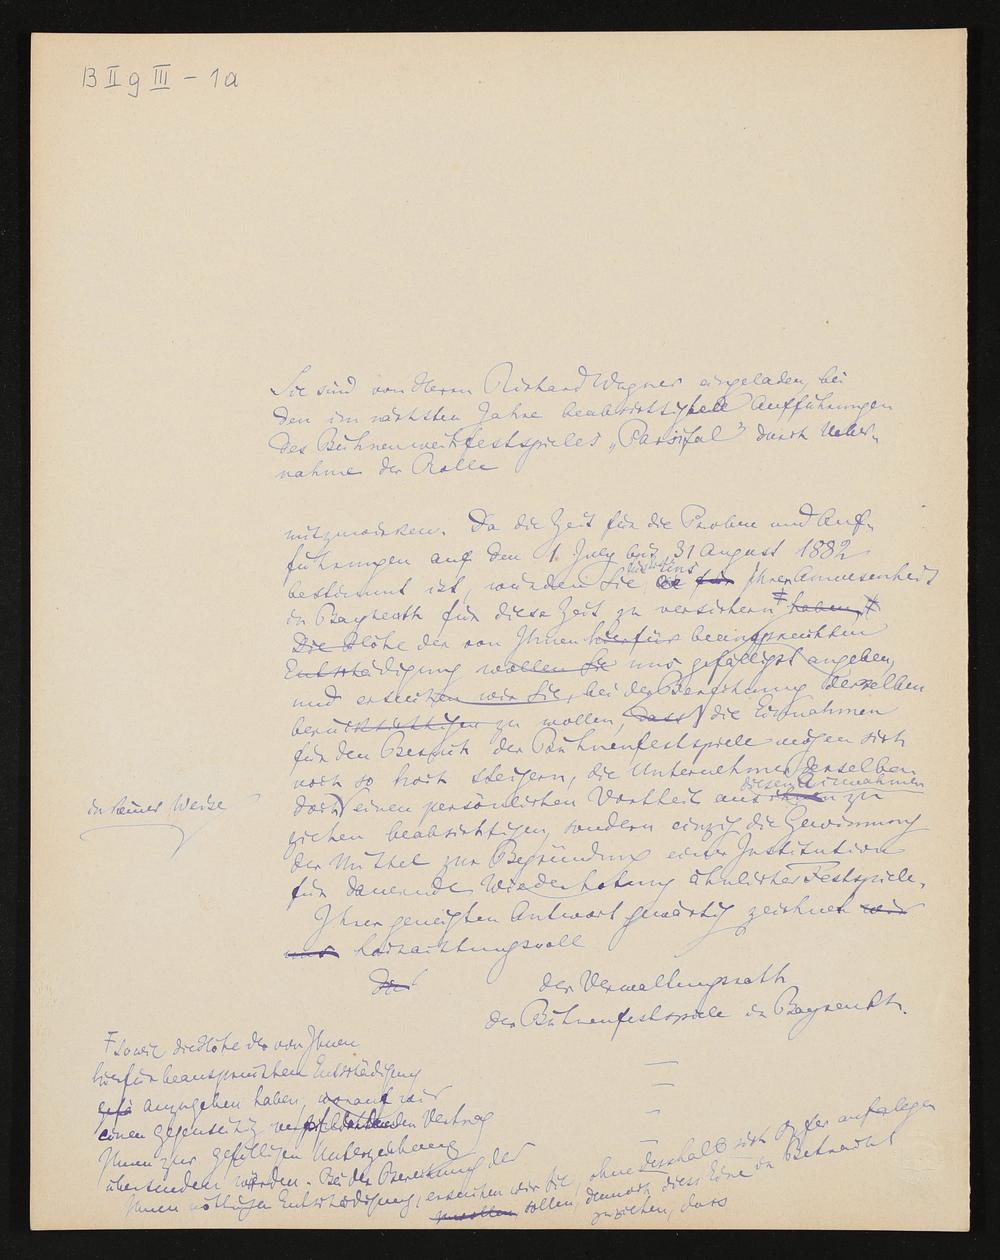 B II g III - 1a
Sie sind von Herrn Richard Wagner eingeladen, bei
den im nächsten Jahre beabsichtigten Aufführungen
des Bühnenweihfestspieles „Parsifal" durch Ueber-
nahme der Rolle
mitzuwirken. Da die Zeit für die Proben und Auf-
führungen auf den 1. July bis 31 August 1882
bestimmt ist, würden Sie uns für Ihrer Anwesenheit
in Bayreuth für diese Zeit zu versichern haben,
Die Höhe der von Ihnen hierfür beanspruchten
Entschädigung wollen Sie uns gefälligst angeben,
und ersuchen wir Sie, bei der Berechnung derselben
berücksichtigen zu wollen, dass die Einnahmen
für den Besuch der Bühnenfestspiele mögen sich
noch so hoch steigern, die Unternehmer derselben
diesen Einnahmen
doch einen persönlichen Vortheil aus ihnen zu
in keiner Weise
ziehen beabsichtigen, sondern einzig die Gewinnung
der Mittel zur Begründung einer Institution
für dauernde Wiederholung ähnlicher Festspiele.
Ihrer geneigten Antwort gewärtig zeichnen wir
uns hochachtungsvoll
Der
der Verwaltungsrath
der Bühnenfestspiele in Bayreuth.
sowie die Höhe der von Ihnen
hierfür beanspruchten Entschädigung
anzugeben haben, worauf wir
einen gegenseitig den Vertrag
Ihnen zur gefälligen Unterzeichnung
übersenden würden. Bei der Berechnung der
Ihnen nöthigen Entschädigung, ersuchen wir Sie, ohne deshalb sich Opfer auferlegen
zu wollen sollen, dennoch diess Eine in Betracht
zu ziehen, dass